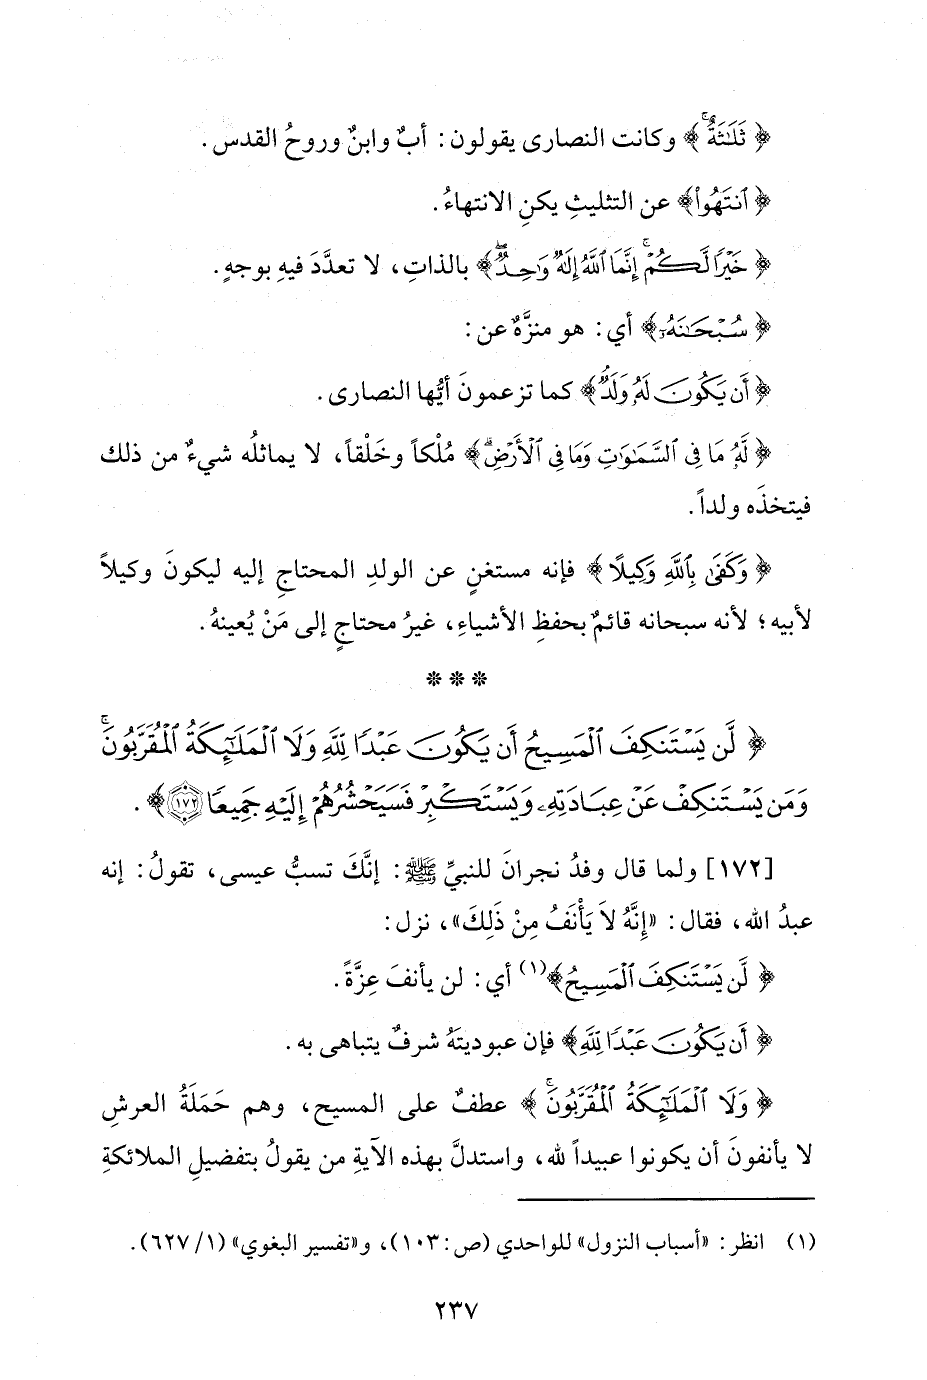 ﴿ثَلَٰثَةٌۚ﴾ وكانت النصارى يقولون: أبٌ وابنٌ وروحُ القدس.
﴿ٱنتَهُوا۟﴾ عن التثليثِ يكنِ الانتهاءُ.
﴿خَيْرًا لَّكُمْۚ إِنَّمَا ٱللَّهُ إِلَٰهٌ وَٰحِدٌۖ﴾ بالذاتِ، لا تعدَّدَ فيهِ بوجهٍ.
﴿سُبْحَٰنَهُۥٓ﴾ أي: هو منزَّهٌ عن:
﴿أَن يَكُونَ لَهُۥ وَلَدٌۘ﴾ كما تزعمونَ أيُّها النصارى.
﴿لَّهُۥ مَا فِى ٱلسَّمَٰوَٰتِ وَمَا فِى ٱلْأَرْضِۗ﴾ مُلْكاً وخَلْقاً، لا يماثلُه شيءٌ من ذلك
فيتخذَه ولداً.
﴿وَكَفَىٰ بِٱللَّهِ وَكِيلًا﴾ فإنه مستغنٍ عن الولدِ المحتاجِ إليه ليكونَ وكيلاً
لأبيه؛ لأنه سبحانه قائمٌ بحفظِ الأشياءِ، غيرُ محتاجٍ إلى مَنْ يُعينهُ.
* * *
﴿لَّن يَسْتَنكِفَ ٱلْمَسِيحُ أَن يَكُونَ عَبْدًا لِّلَّهِ وَلَا ٱلْمَلَٰٓئِكَةُ ٱلْمُقَرَّبُونَۚ
وَمَن يَسْتَنكِفْ عَنْ عِبَادَتِهِۦ وَيَسْتَكْبِرْ فَسَيَحْشُرُهُمْ إِلَيْهِ جَمِيعًا ١٧٢﴾.
[١٧٢] ولما قال وفدُ نجرانَ للنبيِّ ﷺ: إنَّكَ تسبُّ عيسى، تقولُ: إنه
عبدُ الله، فقال: «إِنَّهُ لاَ يَأْنَفُ مِنْ ذَلِكَ»، نزل:
﴿لَّن يَسْتَنكِفَ ٱلْمَسِيحُ﴾(١) أي: لن يأنفَ عِزَّةً.
﴿أَن يَكُونَ عَبْدًا لِّلَّهِ﴾ فإن عبوديتَهُ شرفٌ يتباهى به.
﴿وَلَا ٱلْمَلَٰٓئِكَةُ ٱلْمُقَرَّبُونَۚ﴾ عطفٌ على المسيح، وهم حَمَلَةُ العرشِ
لا يأنفونَ أن يكونوا عبيداً لله، واستدلَّ بهذه الآيةِ من يقولُ بتفضيلِ الملائكةِ
(١) انظر: «أسباب النزول» للواحدي (ص: ١٠٣)، و«تفسير البغوي» (١/ ٦٢٧).
٢٣٧